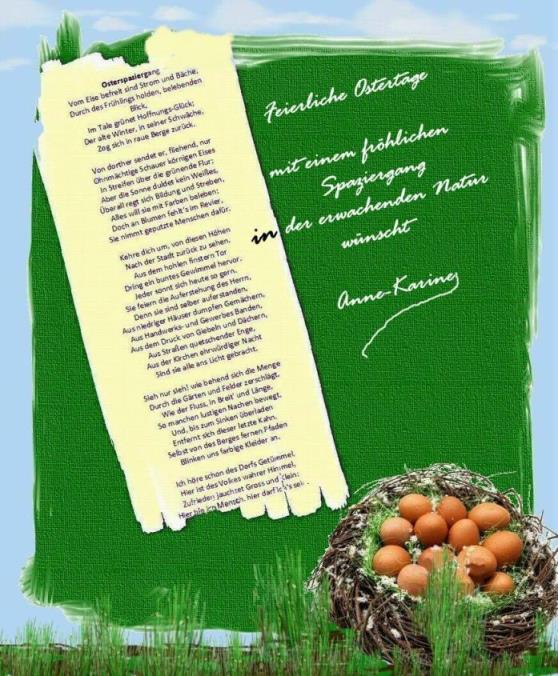 Osterspaziergang
Vom Eise befreit sind Strom und Bäche,
Durch des Frühlings holden, belebenden
Blick,
Im Tale grünet Hoffnungs-Glück;
Der alte Winter, in seiner Schwäche,
Zog sich in raue Berge zurück.
Von dorther sendet er, fliehend, nur
Ohnmächtige Schauer körnigen Eises
In Streifen über die grünende Flur;
Aber die Sonne duldet kein Weißes,
Überall regt sich Bildung und Streben,
Alles will sie mit Farben beleben;
Doch an Blumen fehlt's im Revier,
Sie nimmt geputzte Menschen dafür.
Kehre dich um, von diesen Höhen
Nach der Stadt zurück zu sehen.
Aus dem hohlen finstern Tor
Dring ein buntes Gewimmel hervor.
Jeder sonnt sich heute so gern.
Sie feiern die Auferstehung des Herrn,
Denn sie sind selber auferstanden,
Aus niedriger Häuser dumpfen Gemächern,
Aus Handwerks- und Gewerbes Banden,
Aus dem Druck von Giebeln und Dächern,
Aus Straßen quetschender Enge,
Aus der Kirchen ehrwürdiger Nacht
Sind sie alle ans Licht gebracht.
Sieh nur sieh! wie behend sich die Menge
Durch die Gärten und Felder zerschlägt,
Wie der Fluss, in Breit' und Länge,
So manchen lustigen Nachen bewegt,
Und, bis zum Sinken überladen
Entfernt sich dieser letzte Kahn.
Selbst von des Berges fernen Pfaden
Blinken uns farbige Kleider an.
Ich höre schon des Dorfs Getümmel,
Hier ist des Volkes wahrer Himmel,
Zufrieden jauchzet Gross und Klein:
Hier bin ich Mensch, hier darf ich's sein.
Feierliche Ostertage
mit einem fröhlichen
Spaziergang
in der erwachenden Natur
wünscht
Anne-Karine